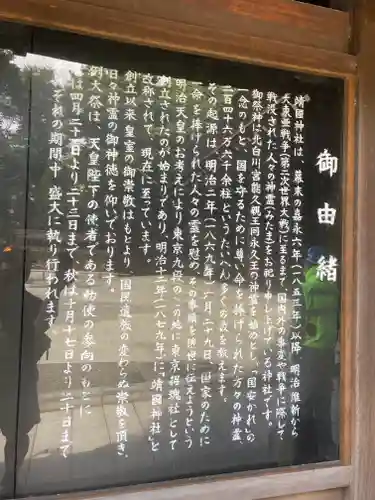 御由緒
靖國神社は、幕末の嘉永六年(一八五三年)以降、明治維新から
大東亜戦争(第二次世界大戦)に至るまで、国内外の事変や戦争に際して
戦没された人々の神霊(みたま)をお祀り申し上げている神社です。
御祭神は北白川宮能久親王同永久王の神霊を始め、「国安かれ」の
一念のもと、国を守るために尊い命を捧げられた方々の神霊、
二百四十六万六千余柱というたいへん多くの数を数えます。
その起源は、明治二年(一八六九年)六月二十九日、国家のために
一命を捧げられた人々の霊を慰め、その事績を後世に伝えようという
明治天皇のお考えにより東京九段のこの地に東京招魂社として
創立されたのが始まりであり、明治十二年(一八七九年)に「靖國神社」と
改称されて、現在に至っています。
創立以来皇室の御崇敬はもとより、国民遺族の変わらぬ崇敬を頂き、
日々神霊の御神徳を仰いでおります。
例大祭は、天皇陛下の使者である勅使の参向のもとに
は四月二十一日より二十三日まで、秋は十月十七日より二十日まで
それぞれの期間中、盛大に執り行われます。